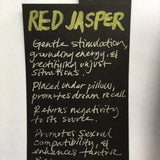 RED JASPER
Gentle stimulation,
grounding energy, &
rectifies unjust
situations.
Placed under pillow,
promotes dream recall.
Returns negativity
to its source.
Promotes sexual
compatibility, &
enhances tantric